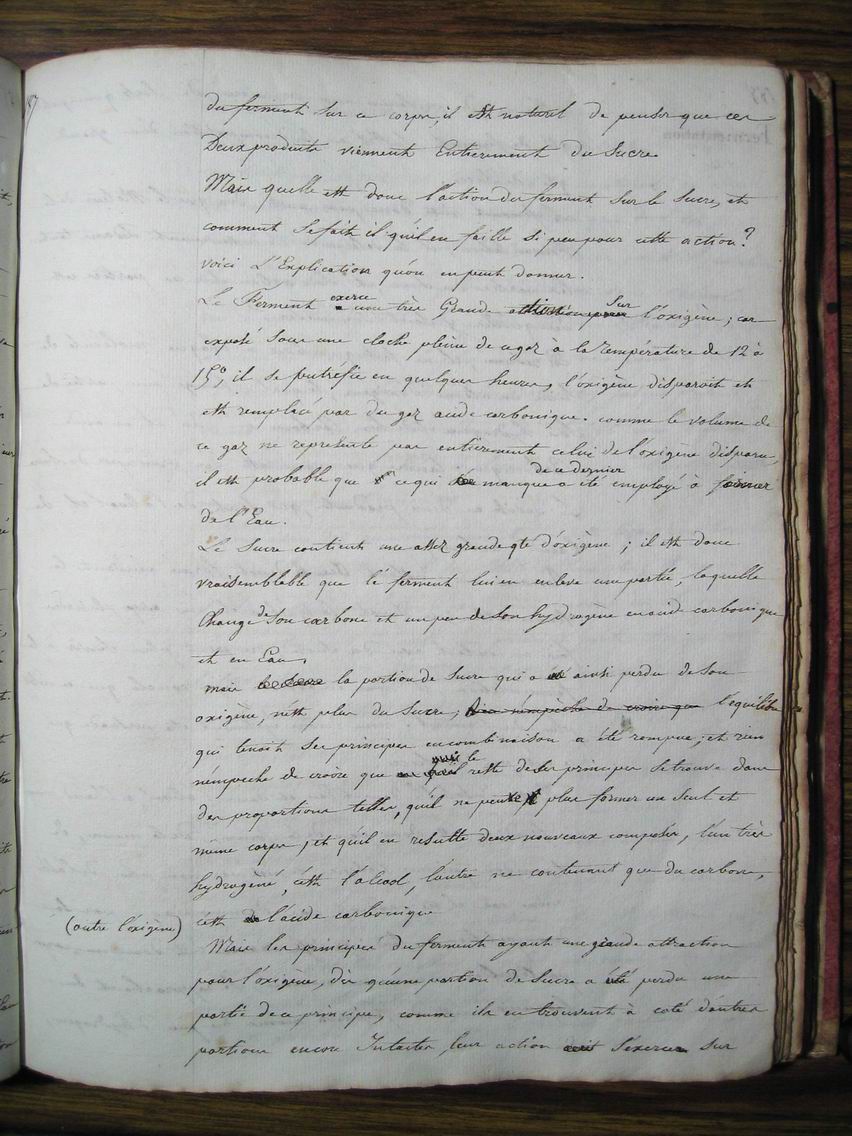 du ferment sur ce corps, il est naturel de penser que ces
Deux produits viennent Entierement du Sucre
Mais quelle est donc l'action du ferment sur le sucre, et
comment se fait il qu'il en faille si peu pour cette action?
voici L'Explication qu'on en peut donner.
Le Ferment exerce une très Grande attraction sur l'oxigène; car
exposé sous une cloche pleine de ce gaz à la température de 12 à
15°, il se putréfie en quelques heures, l'oxigène disparoit et
est remplacé par du gaz acide carbonique. comme le volume de
ce gaz ne represente pas entièrement celui de l'oxigène disparu,
il est probable que ce qui manque de ce dernier a été employé à former
de l'Eau.
Le Sucre contient une assez grande qte d'oxigène; il est donc
vraisemblable que le ferment lui en enleve une partie, laquelle
Change de son carbone et un peu de son hydrogène en acide carbonique
et en Eau,
mais la portion de Sucre qui a ainsi perdu de son
oxigène, n'est plus du sucre; rien n'empèche de croire que l'equilibre
qui tenoit ses principes en combinaison a été rompue; et rien
n'empeche de croire que le reste de ses principes se trouve dans
des proportions telles, qu'il ne peut plus former un seul et
même corps, et qu'il en resulte deux nouveaux composés, l'un très
hydrogéné, c'est l'alcool, l'autre ne contenant que du carbone,
(outre l'oxigène)
c'est l'acide carbonique
Mais les principes du ferment ayant une grande attraction
pour l'oxigène, dès qu'une portion de Sucre a été perdu une
partie de ce principe, comme ils en trouvent à coté d'autres
portions encore Intactes, leur action s'exerce sur